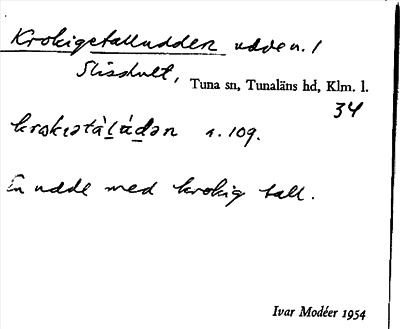 Krokigetalludden udde n. /
Slisdult, Tuna sn, Tunaläns hd, Klm. l.
34
s. 109.
En udde med krokig tall.
Ivar Modéer 1954